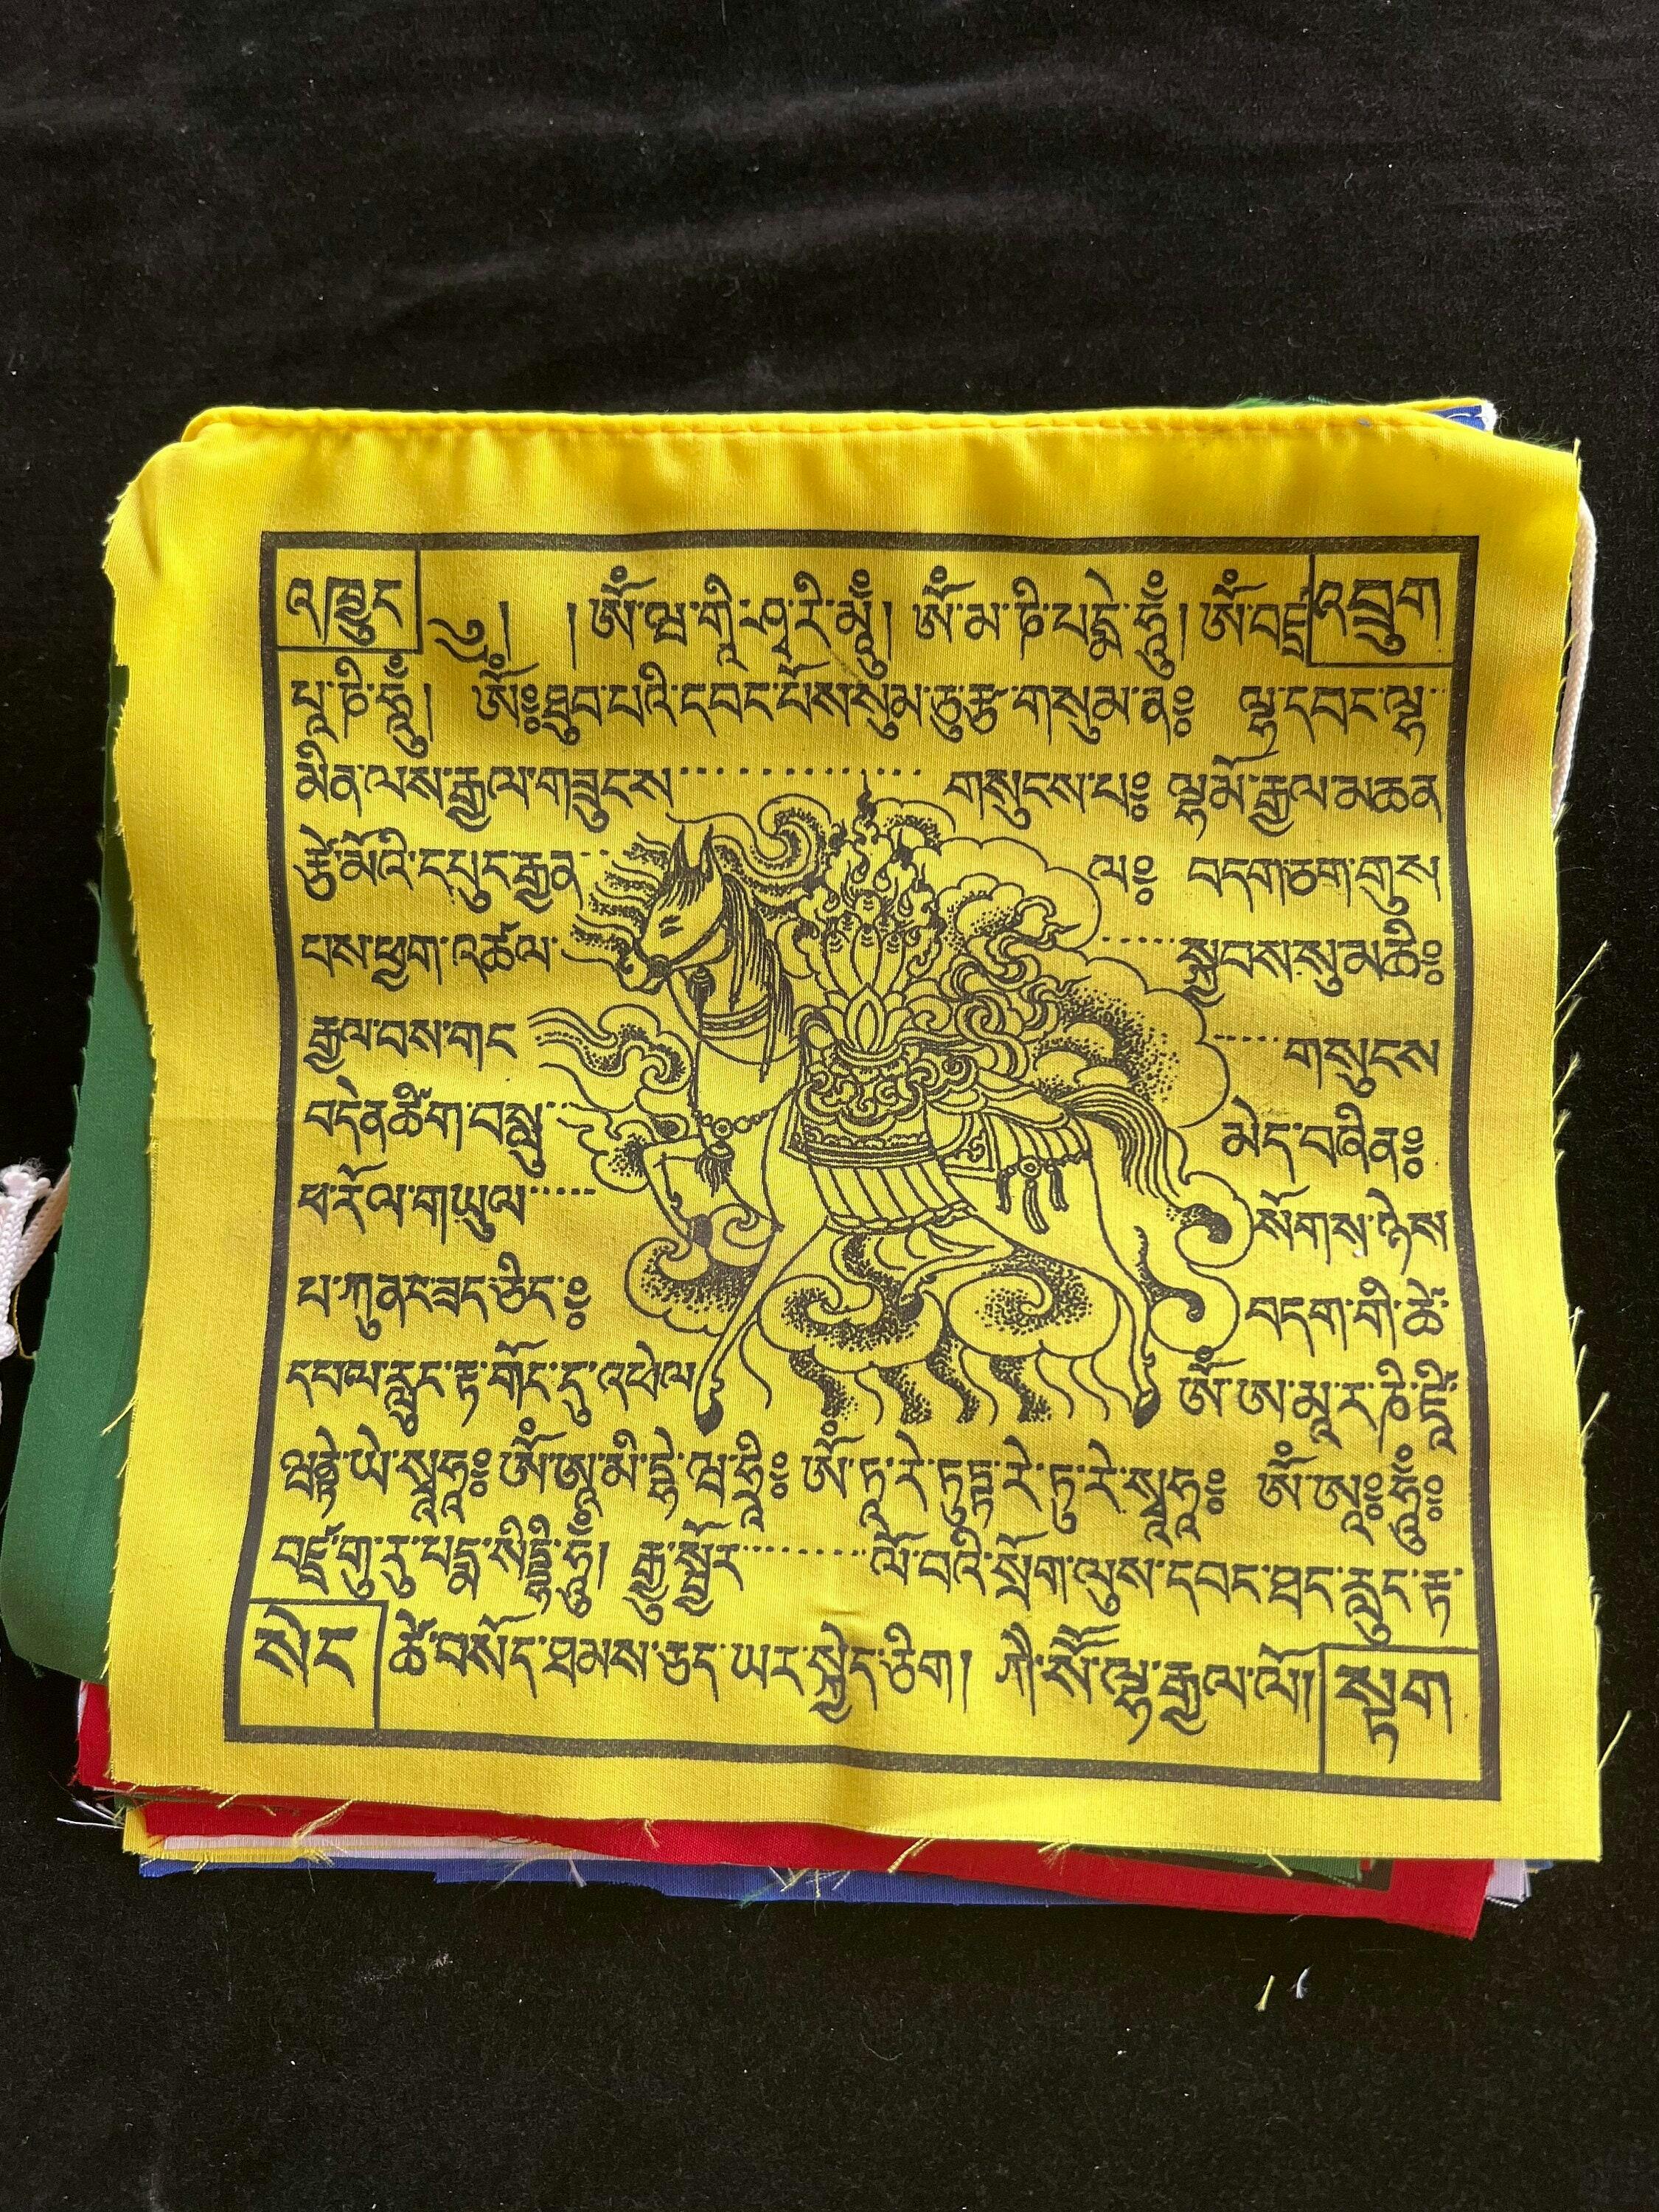 འཁྱུང ༄། །ཨོཾ་ཝ་གཱི་ཤྭ་རི་མཱུྃ། ཨོཾ་མ་ཎི་པདྨེ་ཧཱུྃ། ཨོཾ་བཛྲ འབྲུག
པཱ་ཎི་ཧཱུྃ། ཨོཾ༔ཐུབ་པའི་དབང་པོས་སུམ་ཅུ་རྩ་གསུམ་ན༔ ལྷ་དབང་ལྷ་
མིན་ལས་རྒྱལ་གཟུངས་ གསུངས་པ༔ ལྷ་མོ་རྒྱལ་མཚན
རྩེ་མོའི་དཔུང་རྒྱན་ ལ༔ བདག་ཅག་གུས
པས་ཕྱག་འཚལ་ སྐྱབས་སུ་མཆི༔
རྒྱལ་བས་གང གསུངས
བདེན་ཚིག་བསླུ་ མེད་བཞིན༔
ཕ་རོལ་གཡུལ་ སོགས་ཉེས
པ་ཀུན་ཟང་ཅིང་༔ བདག་གི་ཚེ་
དཔལ་རླུང་རྟ་གོང་དུ་འཕེལ ཨོཾ་ཨ་མཱ་ར་ཎི་ཛཱི
ཝནྟེ་ཡེ་སྭཱཧཱ༔ ཨོཾ་ཨཱ་མི་དྷེ་ཝ་ཧྲཱི༔ ཨོཾ་ཏཱ་རེ་ཏུཏྟཱ་རེ་ཏུ་རེ་སྭཱཧཱ༔ ཨོཾ་ཨཱཿཧཱུྃ༔
བཛྲ་གུ་རུ་པདྨ་སིདྡྷི་ཧཱུྃ། རྒྱུ་སྦྱོར་ ལོ་བའི་སྲོག་ལུས་དབང་ཐང་རླུང་རྟ་
སེང ཚེ་བསོད་ཐམས་ཅད་ཡར་སྐྱེད་ཅིག། ཀི་སོ་ལྷ་རྒྱལ་ལོ། སྟག